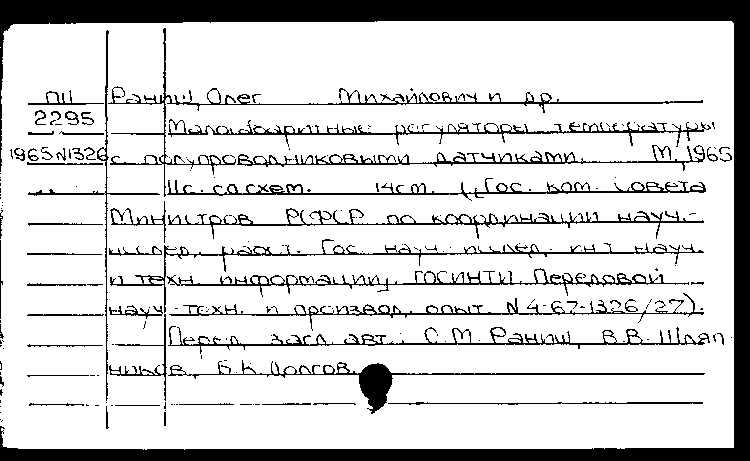 ПИ Раниш, Олег Михайлович и др.
2295 Малогабаритные регуляторы температуры
1965 N1326 с полупроводниковыми датчиками. М, 1965
11с. со схем. 14см. (Гос. ком. Совета
Министров РСФСР по координации науч.-
исслед. работ. Гос. науч. исслед. инт науч.
и техн. информации, ГОСИНТИ. Передовой
науч-техн. и производ. опыт. N 4-67-1326/27).
Перед загл авт.: С.М. Раниш, В.В. Шляп-
ников, Б.К. Долгов.